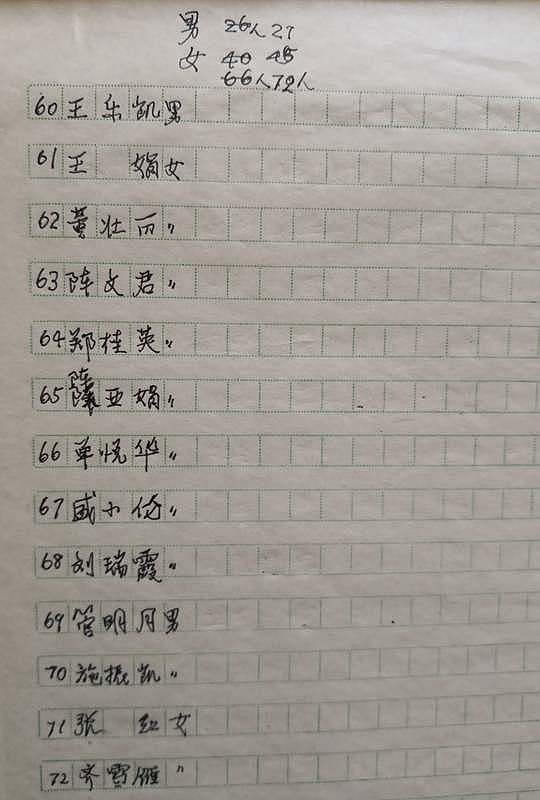 男 26人 27
女 40 45
66人 72人
60 王乐凯 男
61 王 娟 女
62 董壮丽 〃
63 陈文君 〃
64 郑桂英 〃
65 陈亚娟 〃
66 单悦华 〃
67 戚小倩 〃
68 刘瑞霞 〃
69 管明月 男
70 施振凯 〃
71 张 红 女
72 齐雪雁 〃